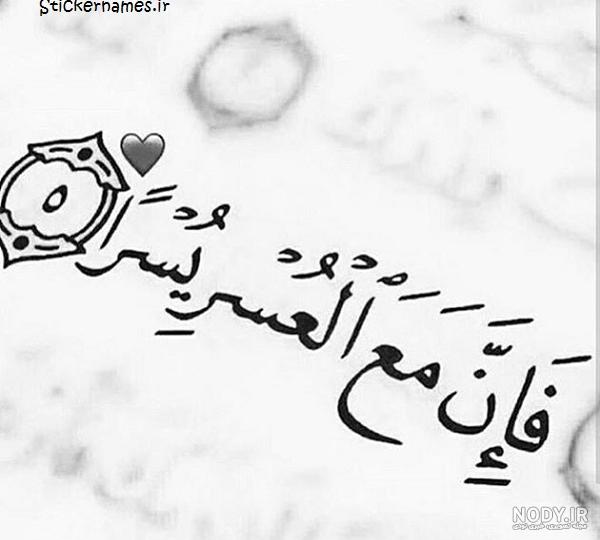 Stickernames.ir
فَإِنَّ مَعَ ٱلْعُسْرِ يُسْرًا ٥
NODY.IR